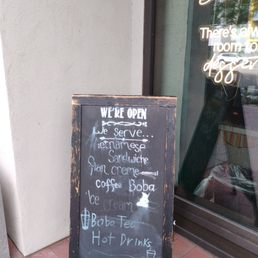 WE'RE OPEN
We serve...
Vietnamese
Sandwiche
flan creme
coffee Boba
Ice cream
Boba Tea
Hot Drinks
There's a
room fo